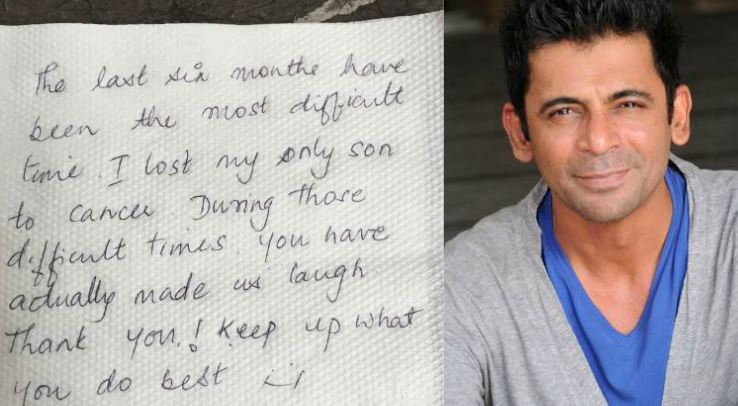 The last six months have
been the most difficult
time. I lost my only son
to cancer. During those
difficult times you have
actually made us laugh
Thank you! Keep up what
you do best :)